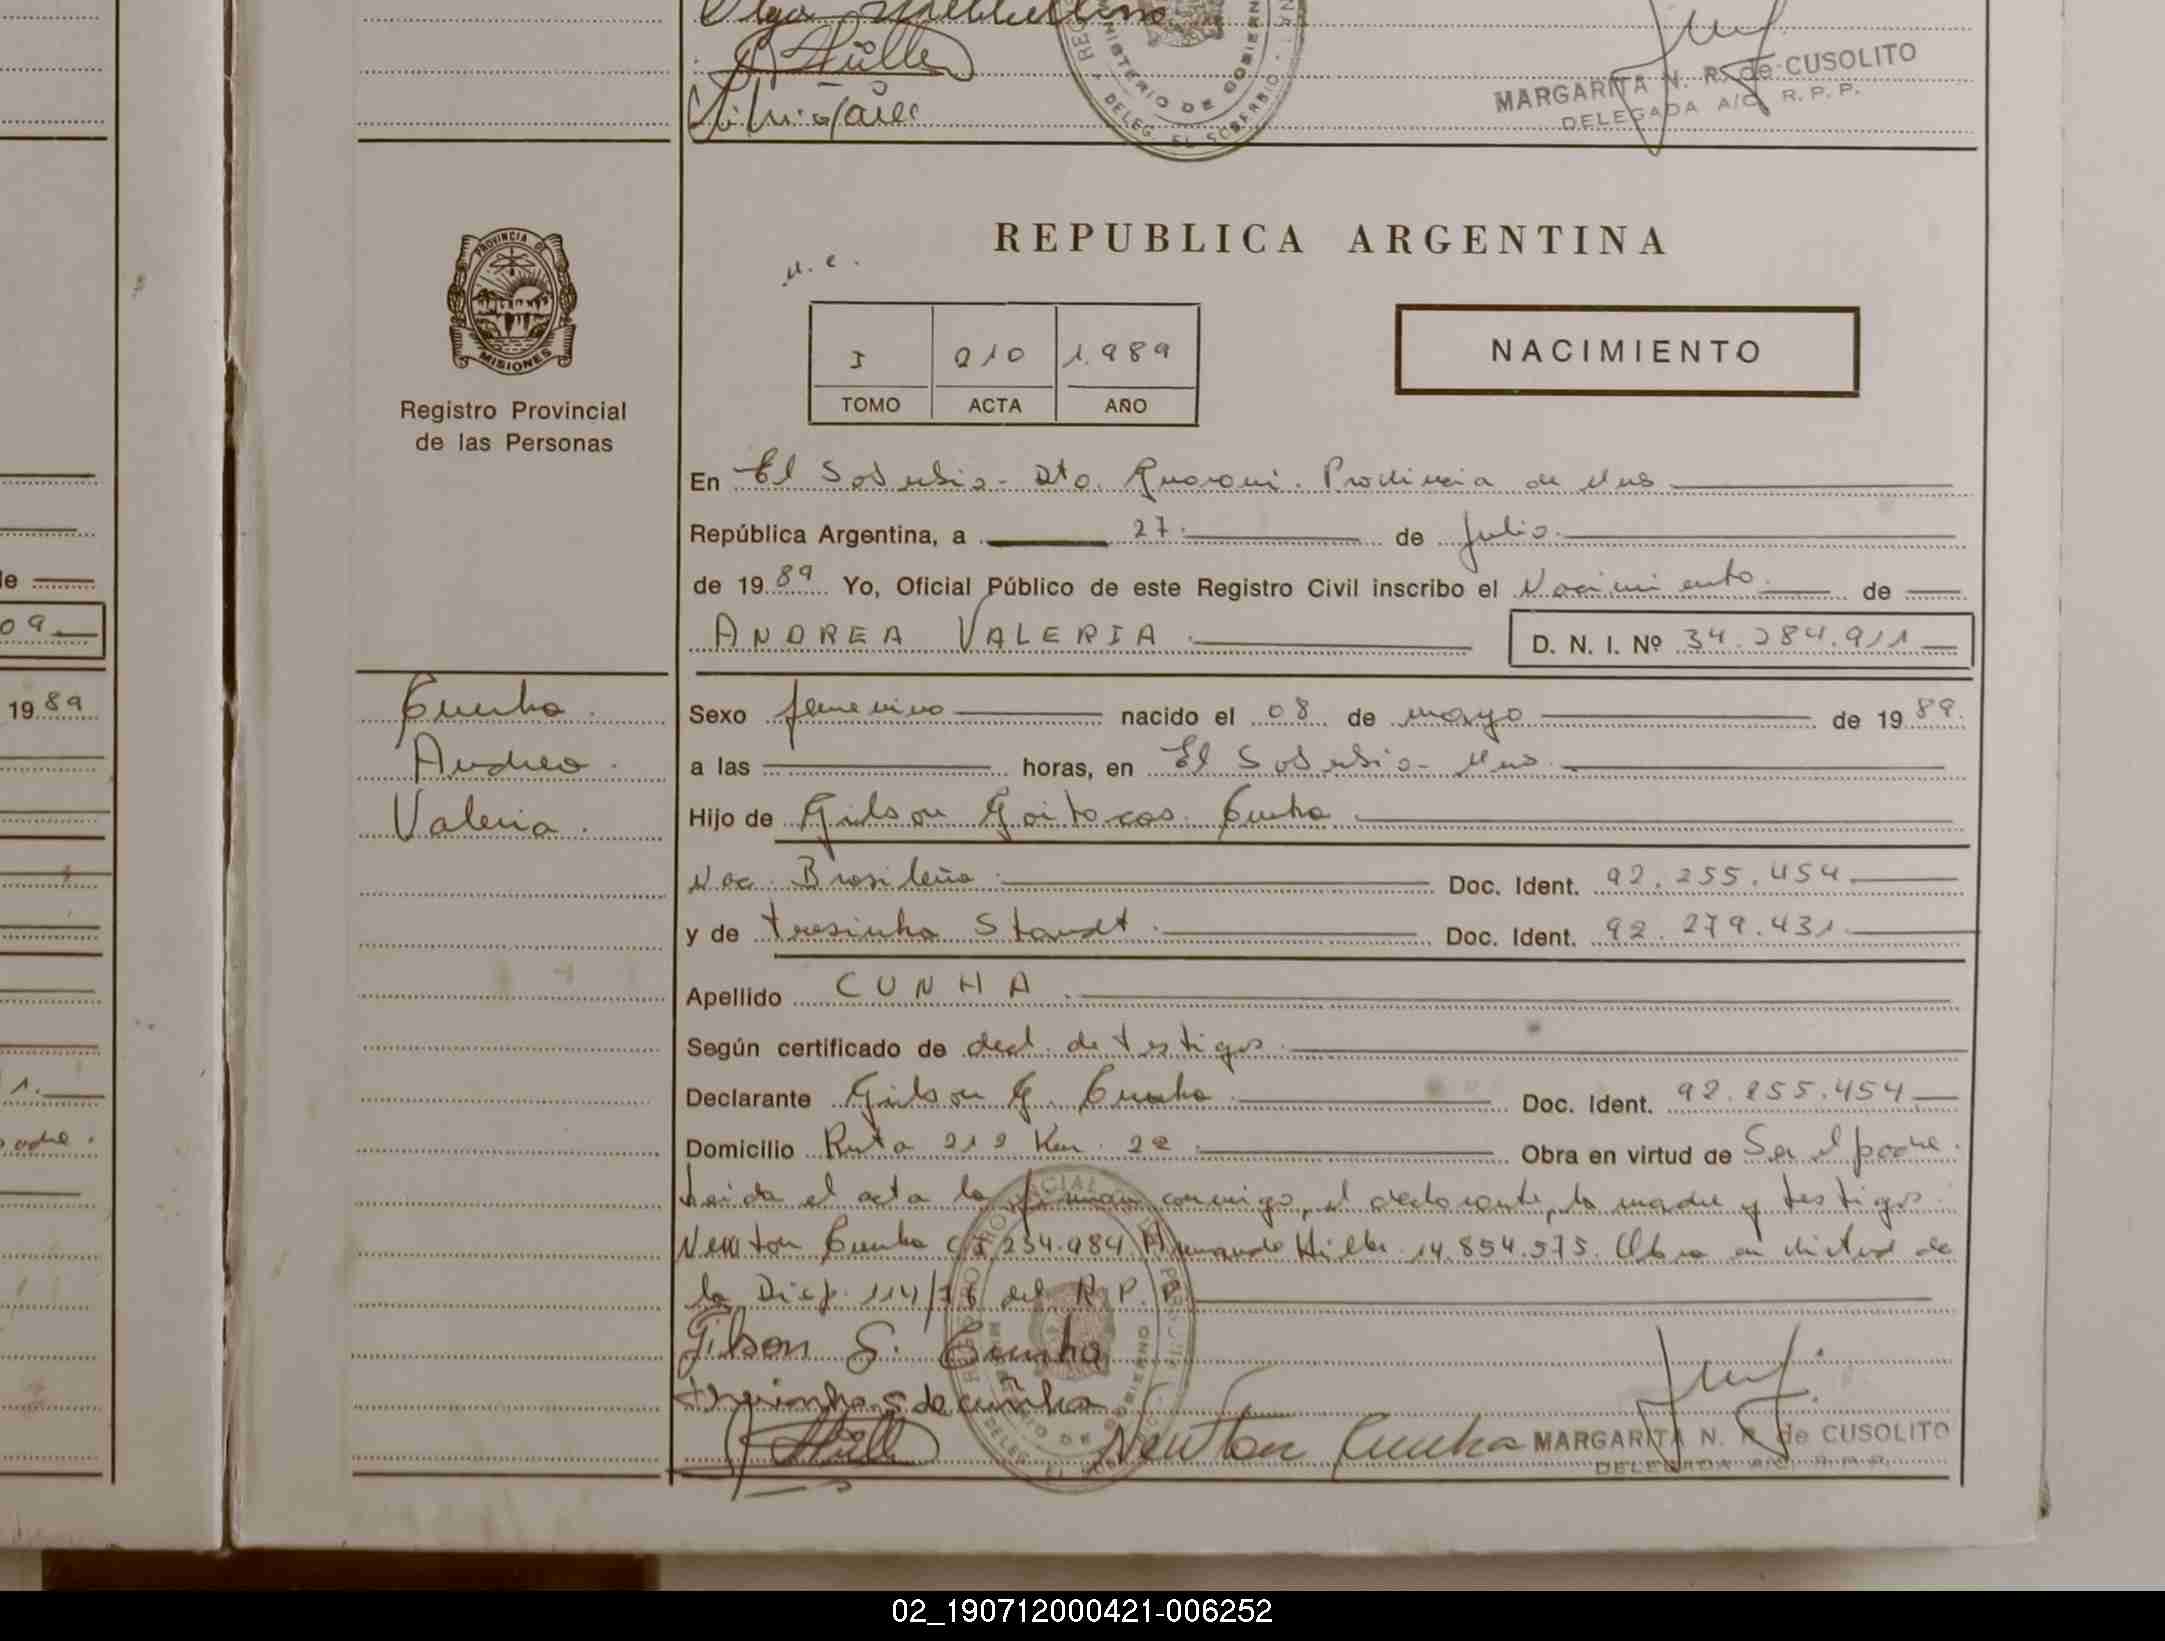 REG
NISTERIO DE GOBIERN
DELEG. EL SOBERBIO
MARGARITA N. R. de CUSOLITO
DELEGADA A/C. R. P. P.
PROVINCIA D
MISIONES
Registro Provincial
de las Personas
REPUBLICA ARGENTINA
I 210 1.989
TOMO ACTA AÑO
NACIMIENTO
En El Soberbio - Dto. Guarani. Provincia de Mnes
República Argentina, a 27 de Julio
de 1989 Yo, Oficial Público de este Registro Civil inscribo el Nacimiento de
ANDREA VALERIA D. N. I. Nº 34.284.911
09
1989
Cunha
Andrea
Valeria
Sexo femenino nacido el 08 de mayo de 1989
a las horas, en El Soberbio - Mnes
Hijo de Gilson Goitacas Cunha
Nac. Brasileña Doc. Ident. 92.255.454
y de Tresinha Staudt Doc. Ident. 92.279.431
Apellido CUNHA
Según certificado de decl. de testigos
Declarante Gilson G. Cunha Doc. Ident. 92.255.454
Domicilio Ruta 212 Km. 22 Obra en virtud de Ser el padre.
Leida el acta la firman conmigo, el declarante, la madre y testigos
Newton Cunha CI 254.984 Armando Hiller 14.854.575. Obra en virtud de
la Disp. 114/76 del R. P. P.
Gilson G. Cunha
de cunha
Newton Cunha
MARGARITA N. R. de CUSOLITO
DELEGADA A/C. R. P. P.
02_190712000421-006252